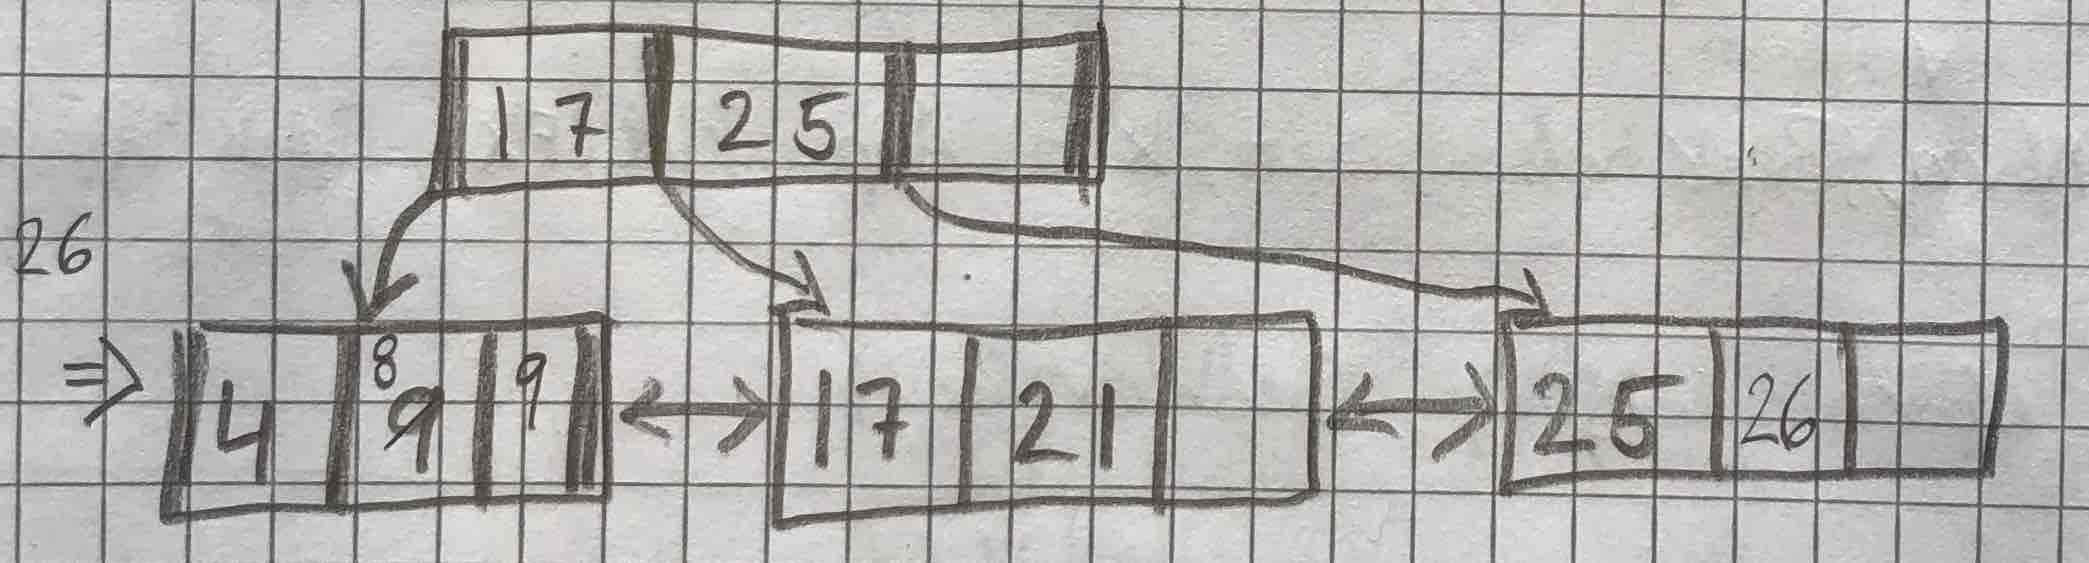 17 25
26
8 9
⇒ 4 9 17 21 25 26